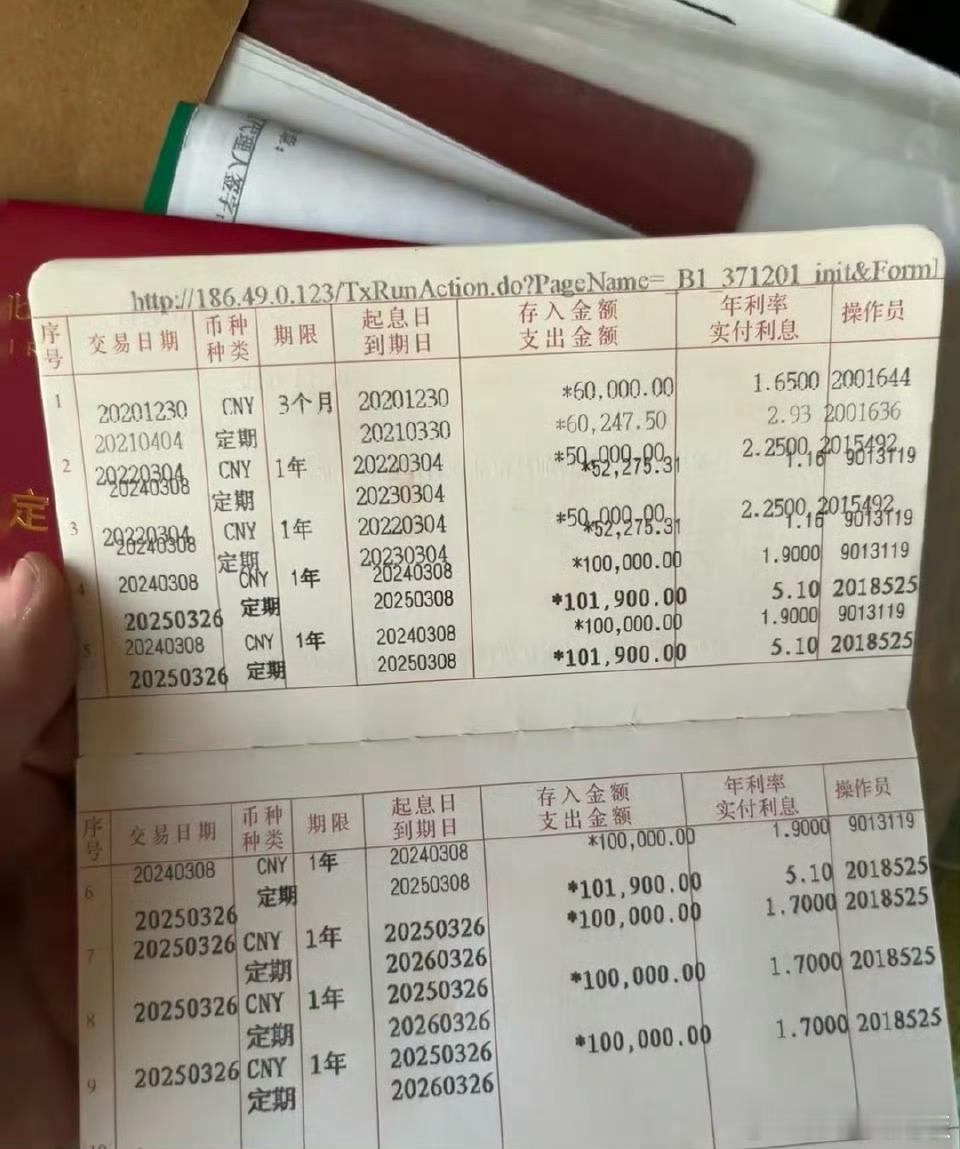 代理人签字
北
定
http://186.49.0.123/TxRunAction.do?PageName=_B1_371201_init&Form
序号 交易日期 币种种类 期限 起息日到期日 存入金额支出金额 年利率实付利息 操作员
1 20201230 CNY 3个月 20201230 *60,000.00 1.6500 2001644
20210404 定期 20210330 *60,247.50 2.93 2001636
2 20220304 CNY 1年 20220304 *50,000.00 2.2500 2015492
20240308 定期 20230304 *52,275.31 1.16 9013119
3 20220304 CNY 1年 20220304 *50,000.00 2.2500 2015492
20240308 定期 20230304 *52,275.31 1.16 9013119
4 20240308 CNY 1年 20240308 *100,000.00 1.9000 9013119
20250326 定期 20250308 *101,900.00 5.10 2018525
5 20240308 CNY 1年 20240308 *100,000.00 1.9000 9013119
20250326 定期 20250308 *101,900.00 5.10 2018525
序号 交易日期 币种种类 期限 起息日到期日 存入金额支出金额 年利率实付利息 操作员
6 20240308 CNY 1年 20240308 *100,000.00 1.9000 9013119
20250326 定期 20250308 *101,900.00 5.10 2018525
7 20250326 CNY 1年 20250326 *100,000.00 1.7000 2018525
定期 20260326
8 20250326 CNY 1年 20250326 *100,000.00 1.7000 2018525
定期 20260326
9 20250326 CNY 1年 20250326 *100,000.00 1.7000 2018525
定期 20260326